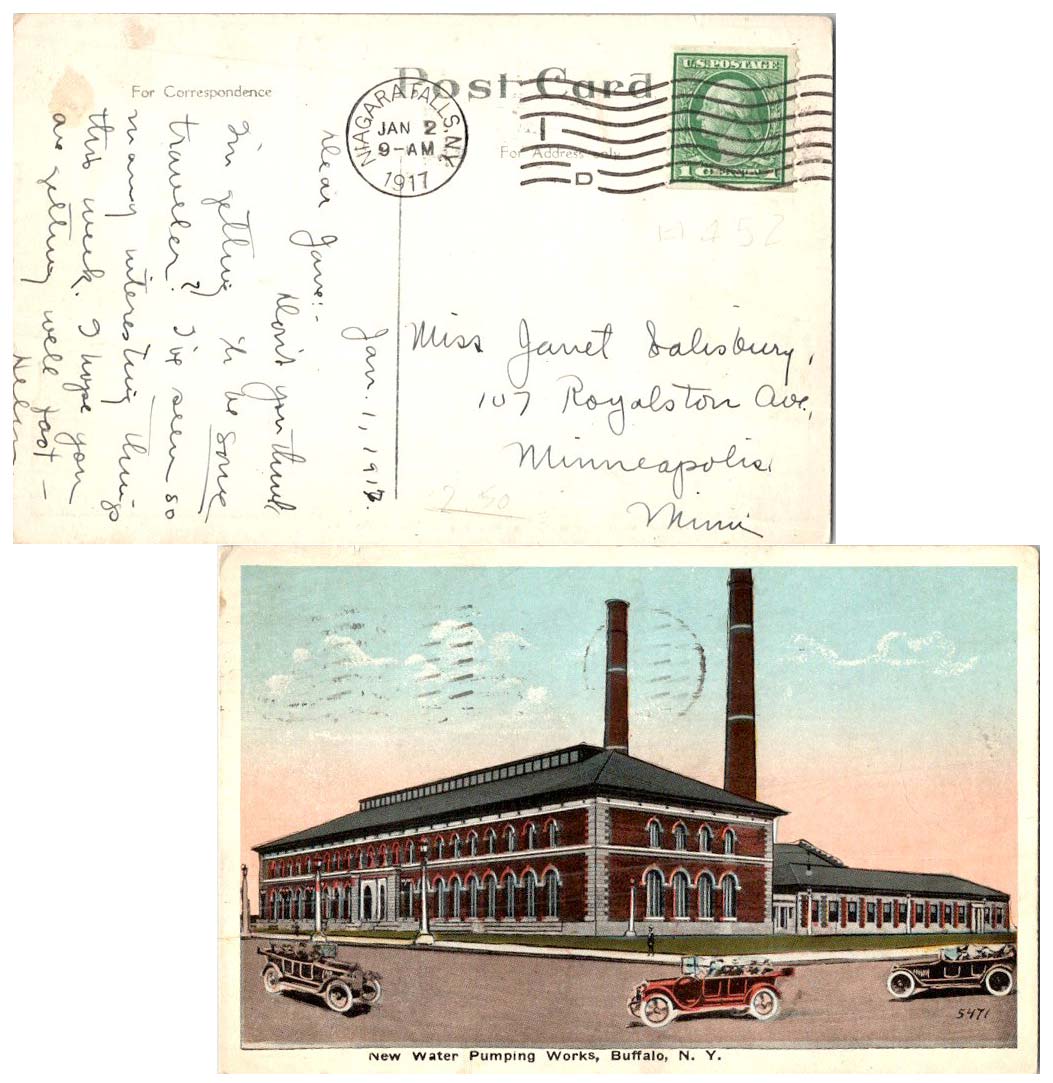 Post Card
For Correspondence
For Address Only
NIAGARA FALLS, N.Y.
JAN 2
9-AM
1917
1
D
U.S. POSTAGE
1 1
Jan. 1, 1917.
Dear Jane:-
Don't you think
I'm getting to be some
traveler? I've seen so
many interesting things
this week. I hope you
are getting well fast -
Helen
Miss Janet Salisbury,
107 Royalston Ave,
Minneapolis
Minn
2 50
5471
New Water Pumping Works, Buffalo, N. Y.